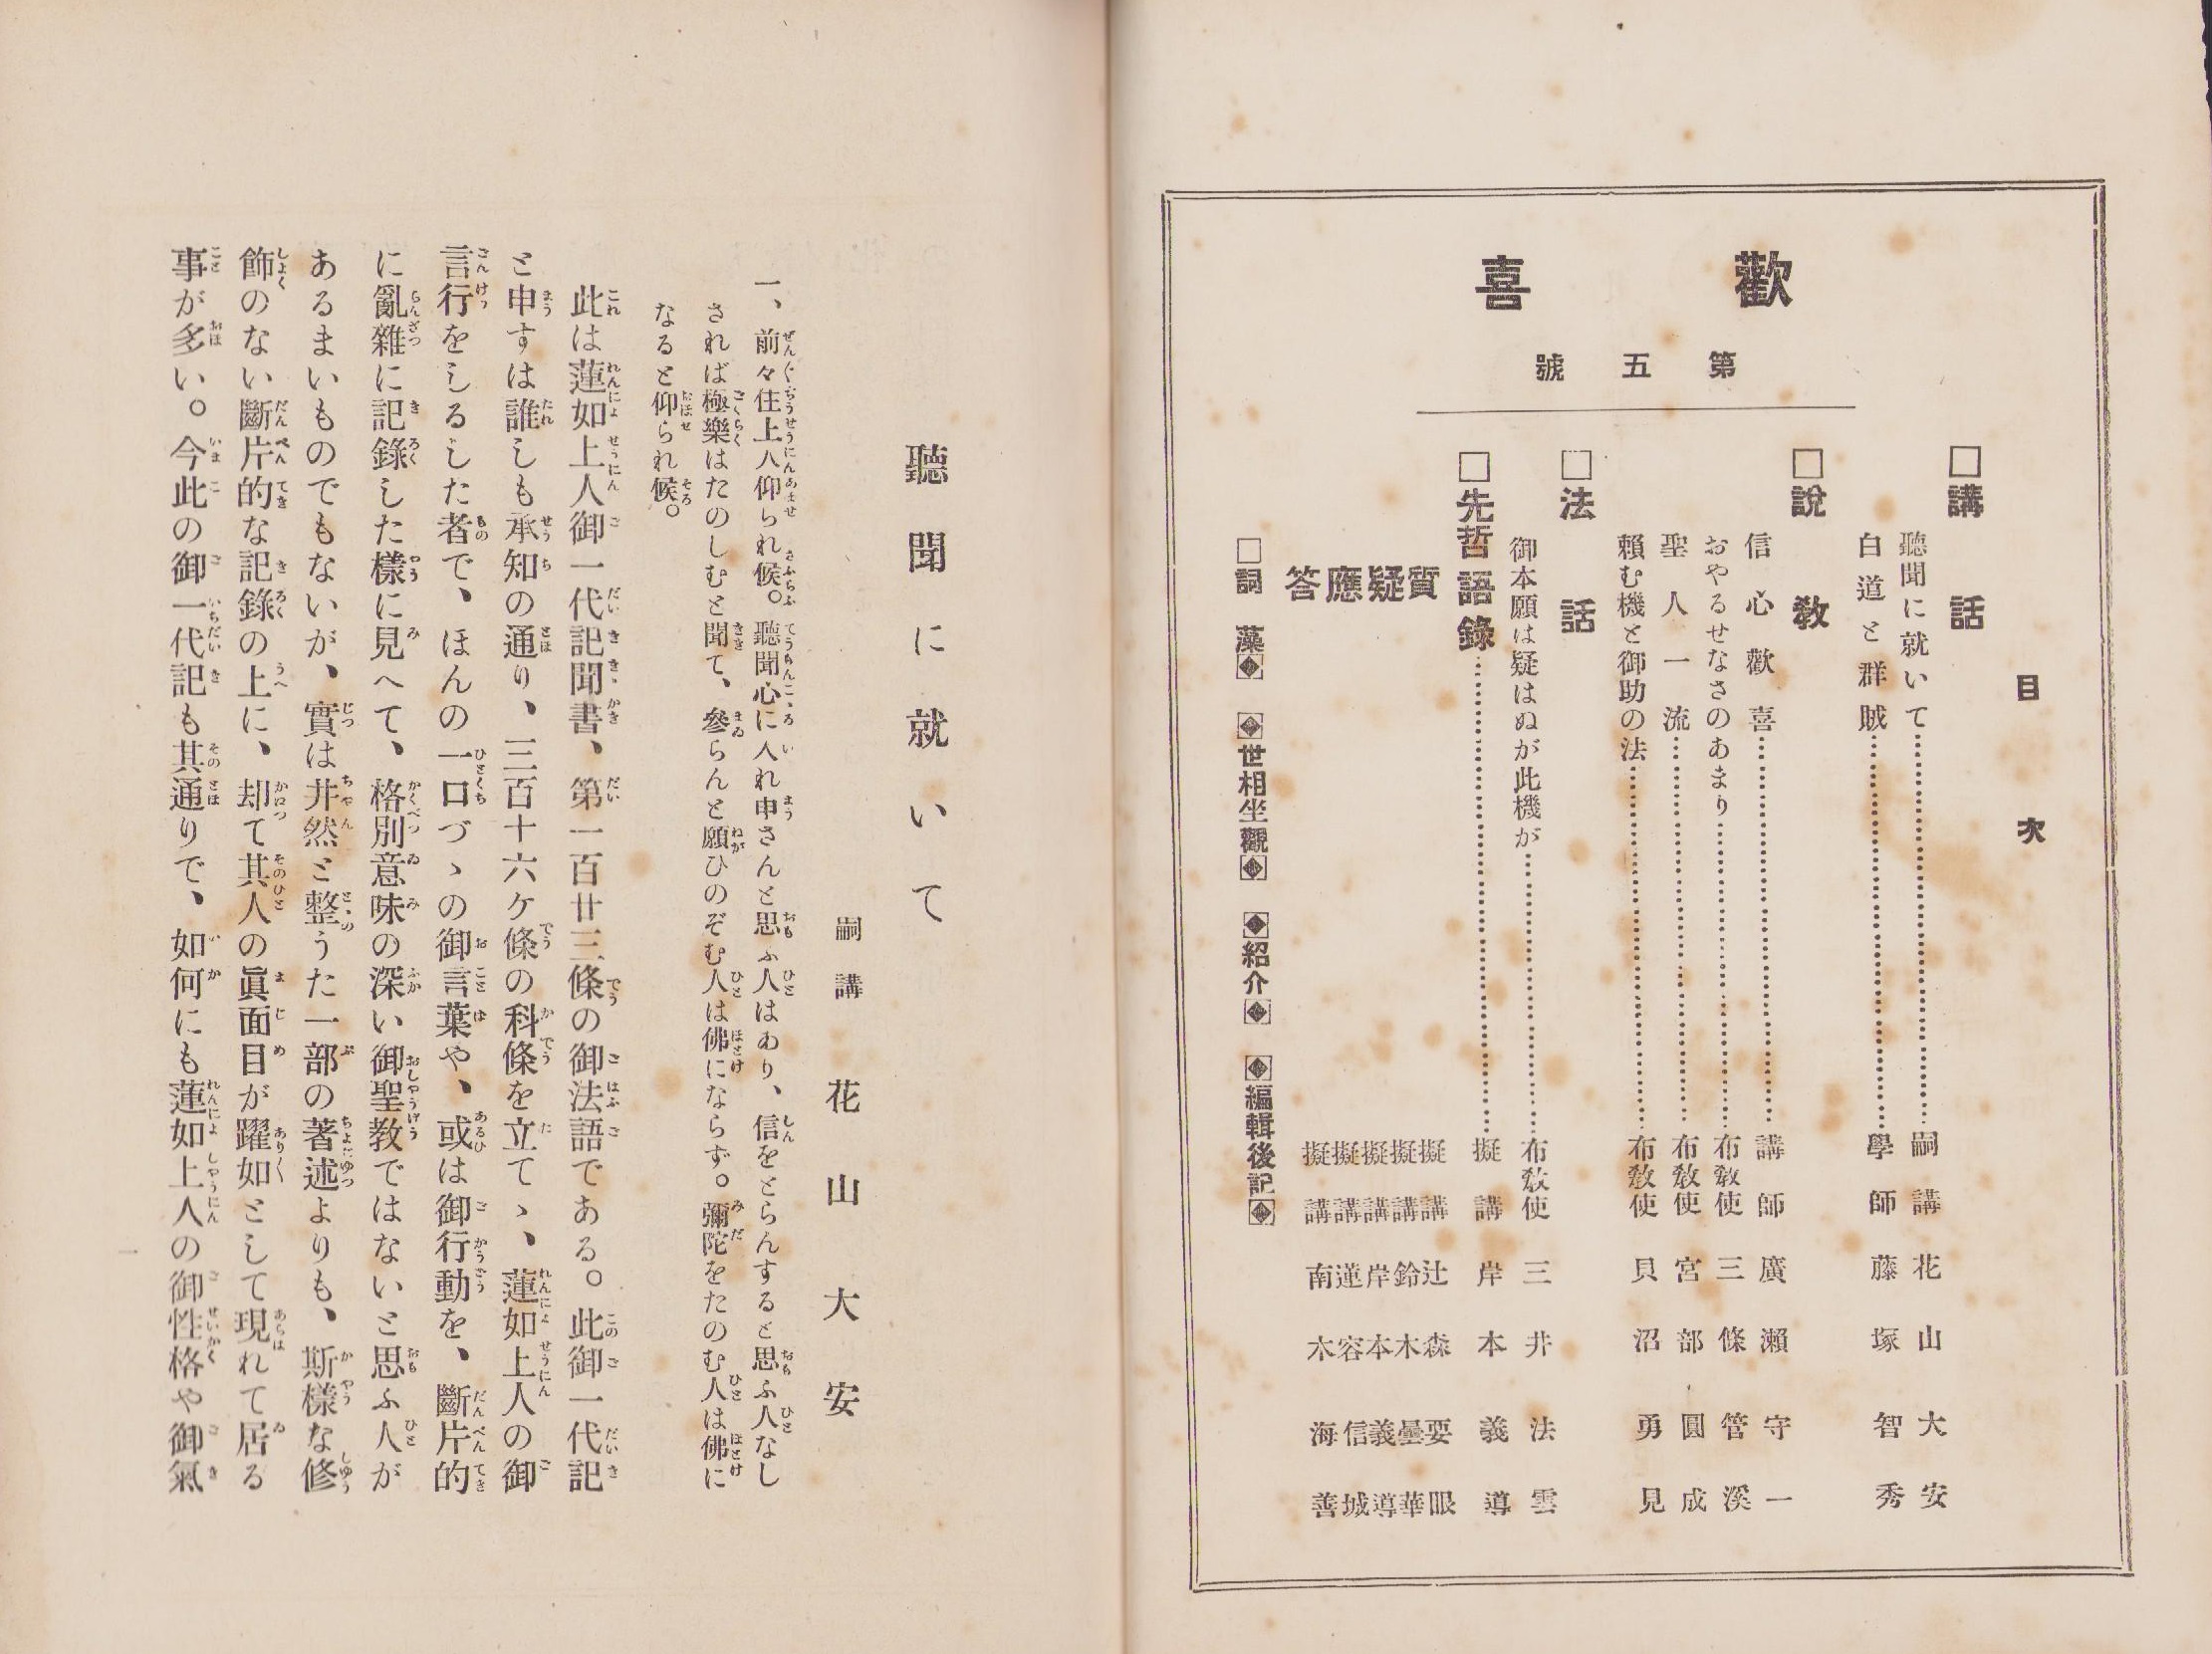 歡喜
第五號
目次
□講話
聽聞に就いて………嗣講 花山大安
白道と群賊………學師 藤塚智秀
□說敎
信心歡喜………講師 廣瀨守一
おやるせなさのあまり………布敎使 三條管溪
聖人一流………布敎使 宮部圓成
賴む機と御助の法………布敎使 貝沼勇見
□法話
御本願は疑はぬが此機が………布敎使 三井法雲
□先哲語錄………擬講 岸本義導
質疑應答
擬講 辻森要眼
擬講 鈴木曇華
擬講 岸本義導
擬講 蓮容信城
擬講 南木海善
□詞藻 世相坐觀 紹介 編輯後記
聽聞に就いて
嗣講 花山大安
一、前々住上人仰られ候。聽聞心に入れ申さんと思ふ人はあり、信をとらんすると思ふ人なし
されば極樂はたのしむと聞て、參らんと願ひのぞむ人は佛にならず。彌陀をたのむ人は佛に
なると仰られ候。
此は蓮如上人御一代記聞書、第一百廿三條の御法語である。此御一代記
と申すは誰しも承知の通り、三百十六ケ條の科條を立てゝ、蓮如上人の御
言行をしるした者で、ほんの一口づゝの御言葉や、或は御行動を、斷片的
に亂雜に記錄した樣に見へて、格別意味の深い御聖敎ではないと思ふ人が
あるまいものでもないが、實は井然と整うた一部の著述よりも、斯樣な修
飾のない斷片的な記錄の上に、却て其人の眞面目が躍如として現れて居る
事が多い。今此の御一代記も其通りで、如何にも蓮如上人の御性格や御氣
一